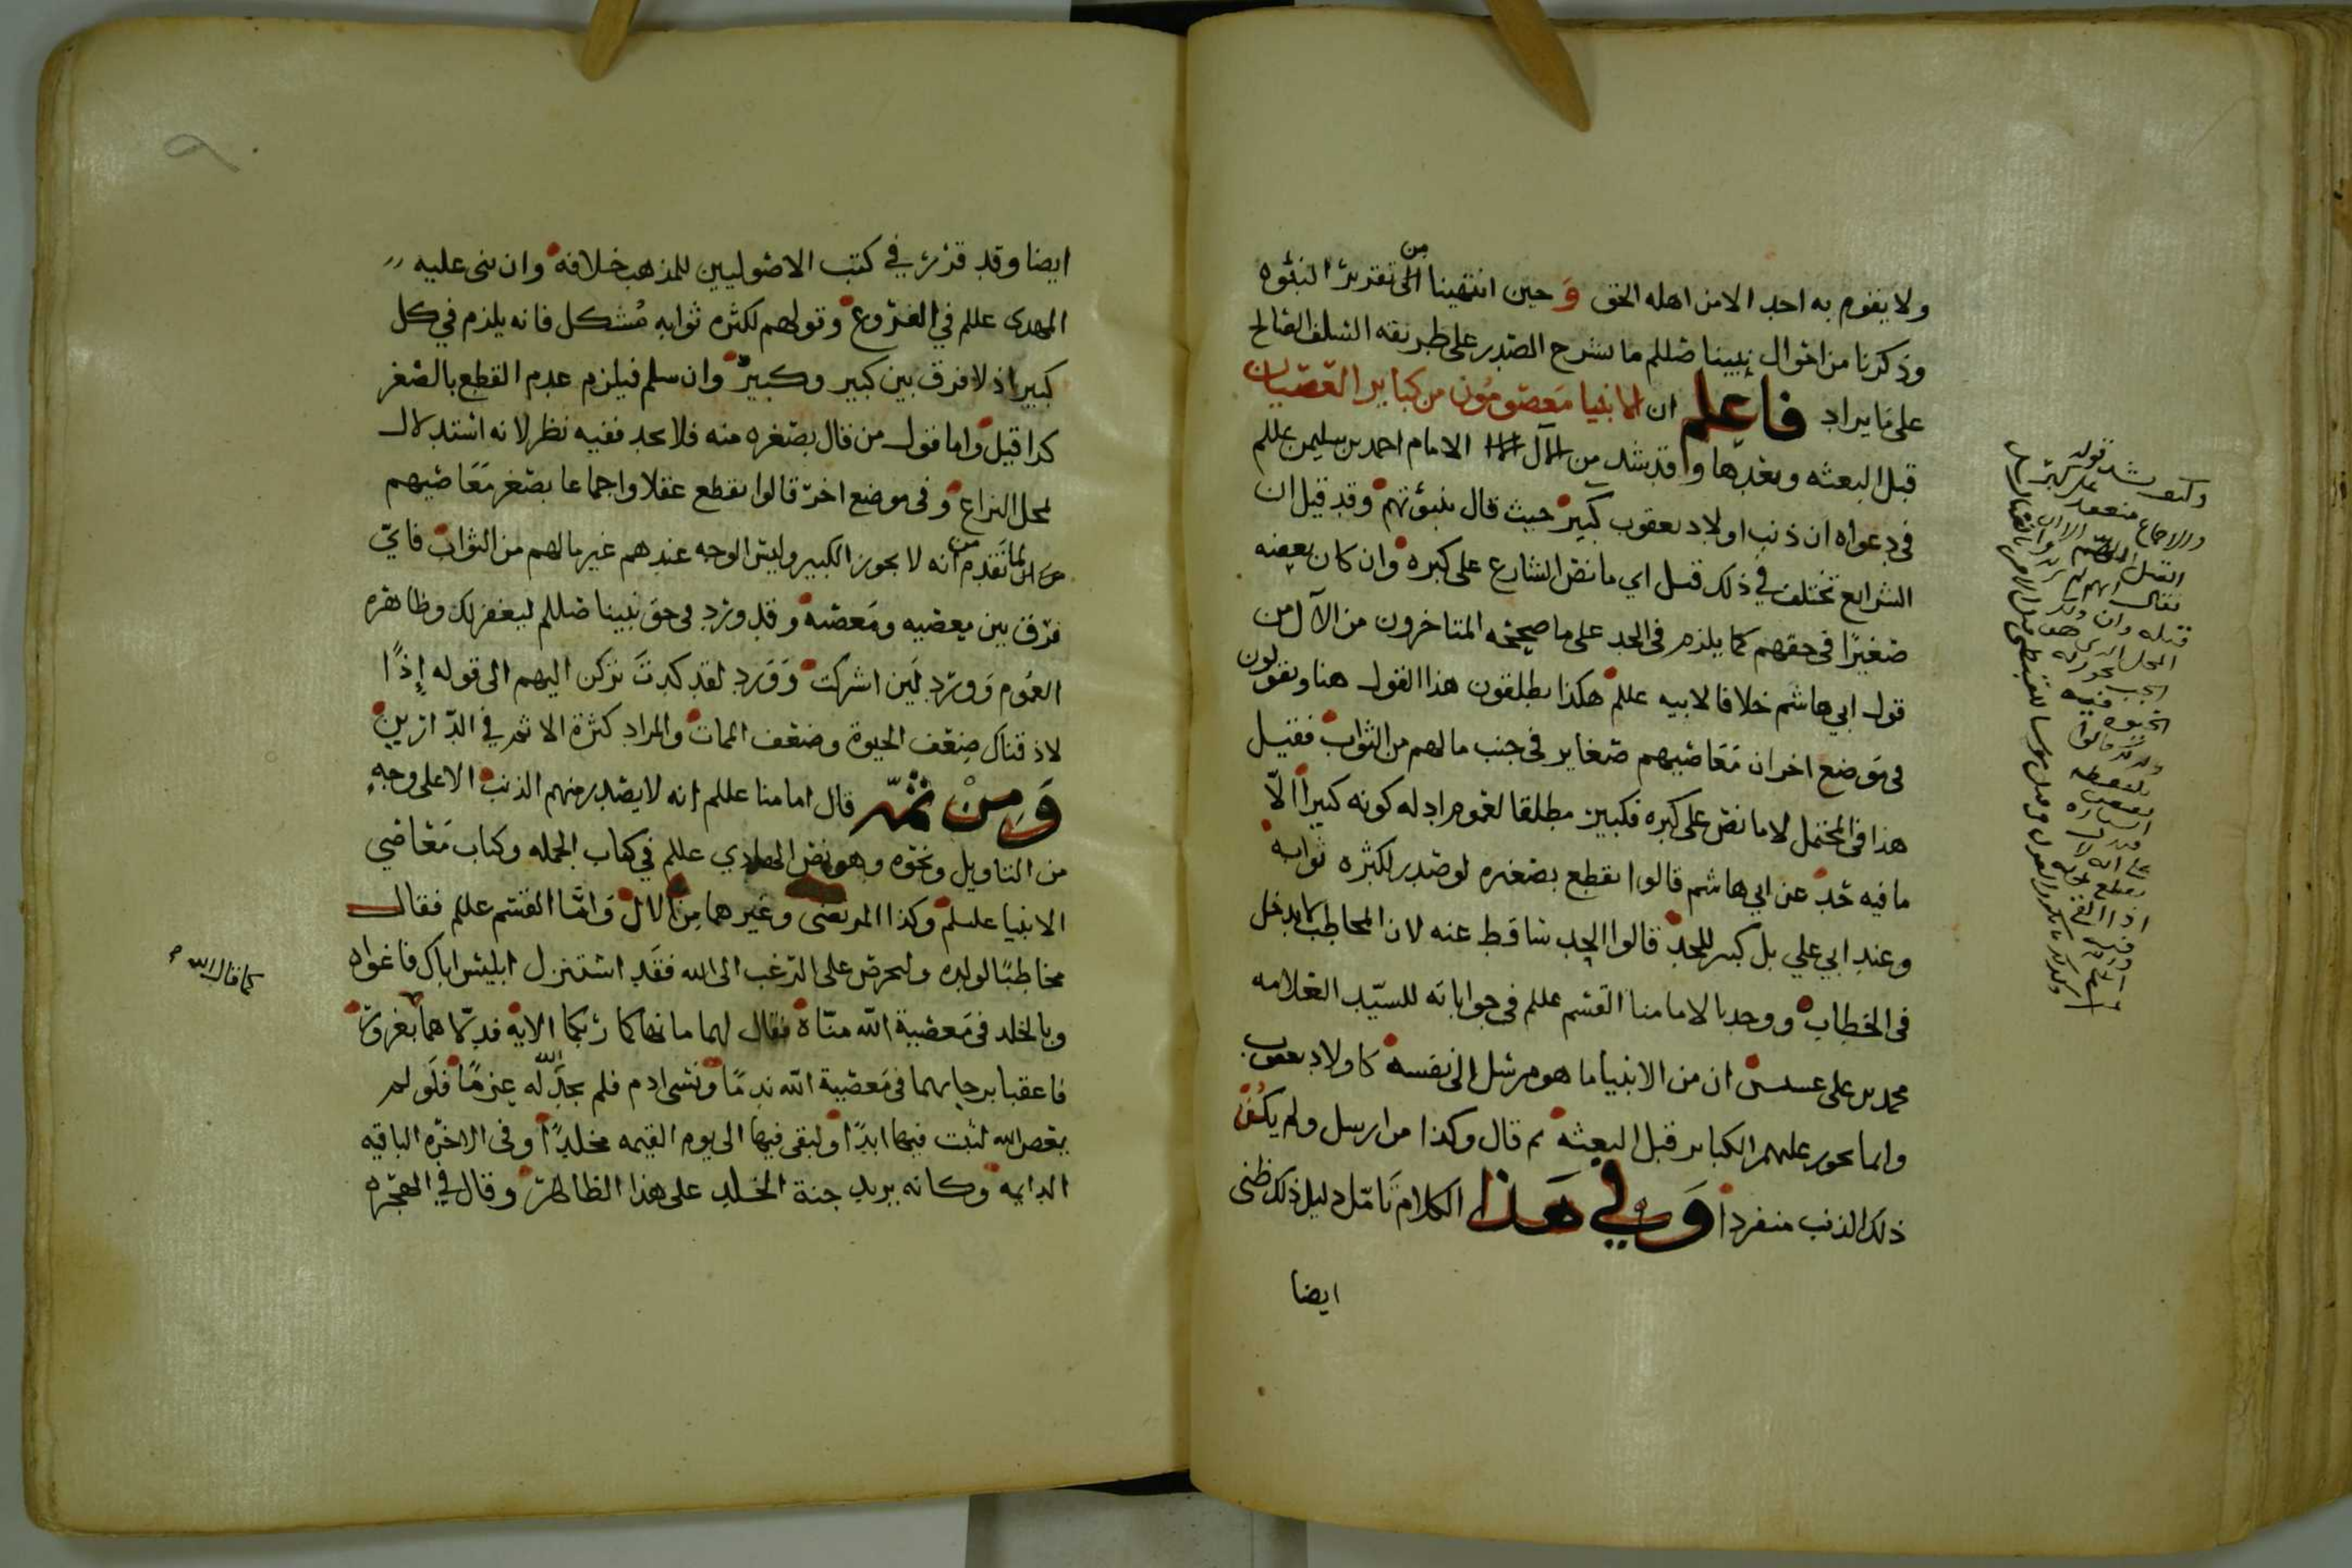 ولا يقوم به احد الا من اهله الحق وَحين انتهينا من الى تقرير النبوه
وذكرنا من احوال نبينا صللم ما يشرح الصدر على طريقه السلف الصالح
على ما يراد فاعلم ان الانبيا معصومون من كباير العصيان
قبل البعثه وبعدها وقد شد من الآل الامام احمد بن سليمن عللم
في دعواه ان ذنب اولاد يعقوب كبير حيث قال بنبوتهم وقد قيل ان
الشرايع تختلف في ذلك قبل اي ما نص الشارع على كبره وان كان بعضه
صغيرًا في حقهم كما يلزم في الحد على ما صححه المتاخرون من الآل من
قول ابي هاشم خلافا لابيه عللم هكذا يطلقون هذا القول هنا ويقولون
في موضع اخر ان مَعَاصيهم صغاير في جنب ما لهم من الثواب فقيل
هذا في المحتمل لا ما نص على كبره فكبير مطلقا لعموم ادله كونه كبيرًا الّا
ما فيه حد عن ابي هاشم قالوا نقطع بصغره لو صدر لكثره ثوابه
وعند ابي علي بل كبير للحد قالوا الحد ساقط عنه لان المخاطب لا يدخل
في الخطاب ووجدنا لامامنا القسم عللم في جواباته للسيّد العلامه
محمد بن علي ان من الانبيا ما هو مرسل الى نفسه كاولاد يعقوب
وانما يجوز عليهم الكباير قبل البعثه ثم قال وكذا من ارسل ولم يكن
ذلك الذنب منفردا وَفي هَذا الكلام تَامّل دليل ذلك ظنى
ايضا
ايضا وقد قرر في كتب الاصوليين للمذهب خلافه وان بنى عليه
المهدي عللم في الفروع وقولهم لكثره ثوابه مُشكل فانه يلزم في كل
كبير اذ لا فرق بين كبير وكبير وان سلم فيلزم عدم القطع بالصغر
كذا قيل واما قول من قال بصغره منه فلا يحد ففيه نظر لانه استدلال
لمحل النزاع وفي موضع اخر قالوا نقطع عقلا واجماعا بصغر مَعَاصيهم
لما تقدم من انه لا يجوز الكبير وليس الوجه عندهم غير ما لهم من الثواب فايّ
فرق بين معصيه ومَعصيه وقد ورد في حق نبينا صللم ليغفر لك وظاهره
العمُوم وَورَد لَين اشركت وَوَرد لقد كدتَ تركن اليهم الى قوله إذًا
لاذقناك ضعف الحيوة وضعف الممات والمراد كثرة الاثم في الدّارين
وَمِنْ ثمّ قال امامنا عللم انه لا يصدر منهم الذنب الا على وجهٍ
من التاويل ونحوه وهو نص الهادي عللم في كتاب الجمله وكتاب مَعَاصي
الانبيا عليهم وكذا المرتضى وغيرهما من الال وَامّا القسم عللم فقال
مخاطبًا لولده وليحرص على الترغب الى الله فقَد استنزل ابليس اباك فاغواه
كما قال الله
وبالخلد في مَعصية الله منّاه فقال لهما ما نهاكما ربكما الايه فدلّاهما بغرور
فاعقبا برجايهما في مَعصية الله ندمًا ونسى ادم فلم يجد الله له عزمًا فلَو لم
يعص الله لثبت فيها ابدًا ولبقى فيها الى يوم القيمه مخلدًا وفي الاخره الباقيه
الدايمه وكانه يريد جنة الخلد على هذا الظاهر وقال في الهجره